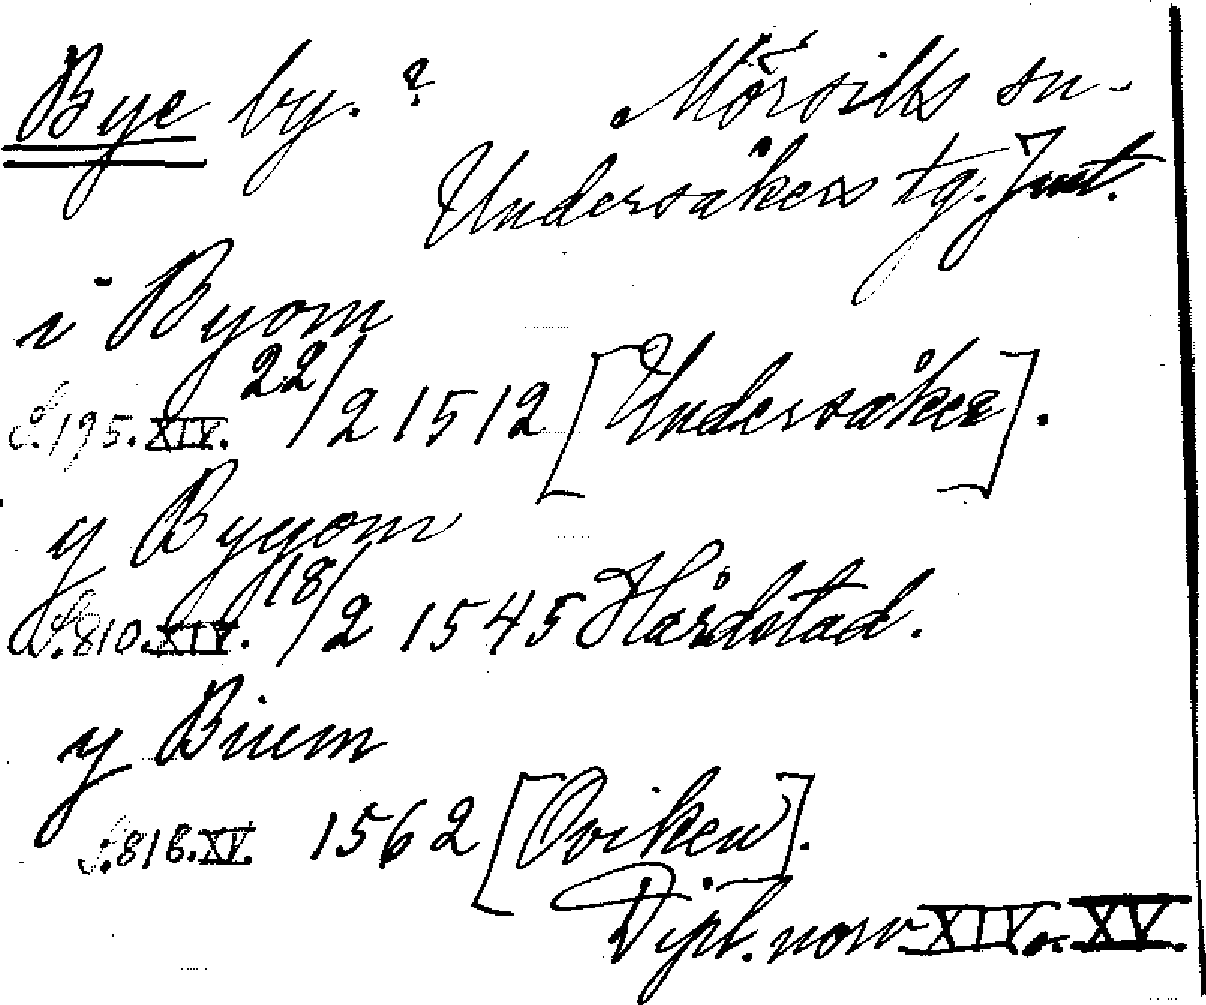 Bye by.? Mörsills sn.
Undersåkers tg. Jmt.
i Byom
S.195.XIV. 22/2 1512 [Undersåker].
y Byyom
S.810.XIV. 18/2 1545 Hårdstad.
y Bium
S.818.XV. 1562 [Oviken].
Dipl. norv XIV o. XV.